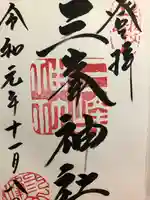 登拝
三峯神社
令和元年十一月八